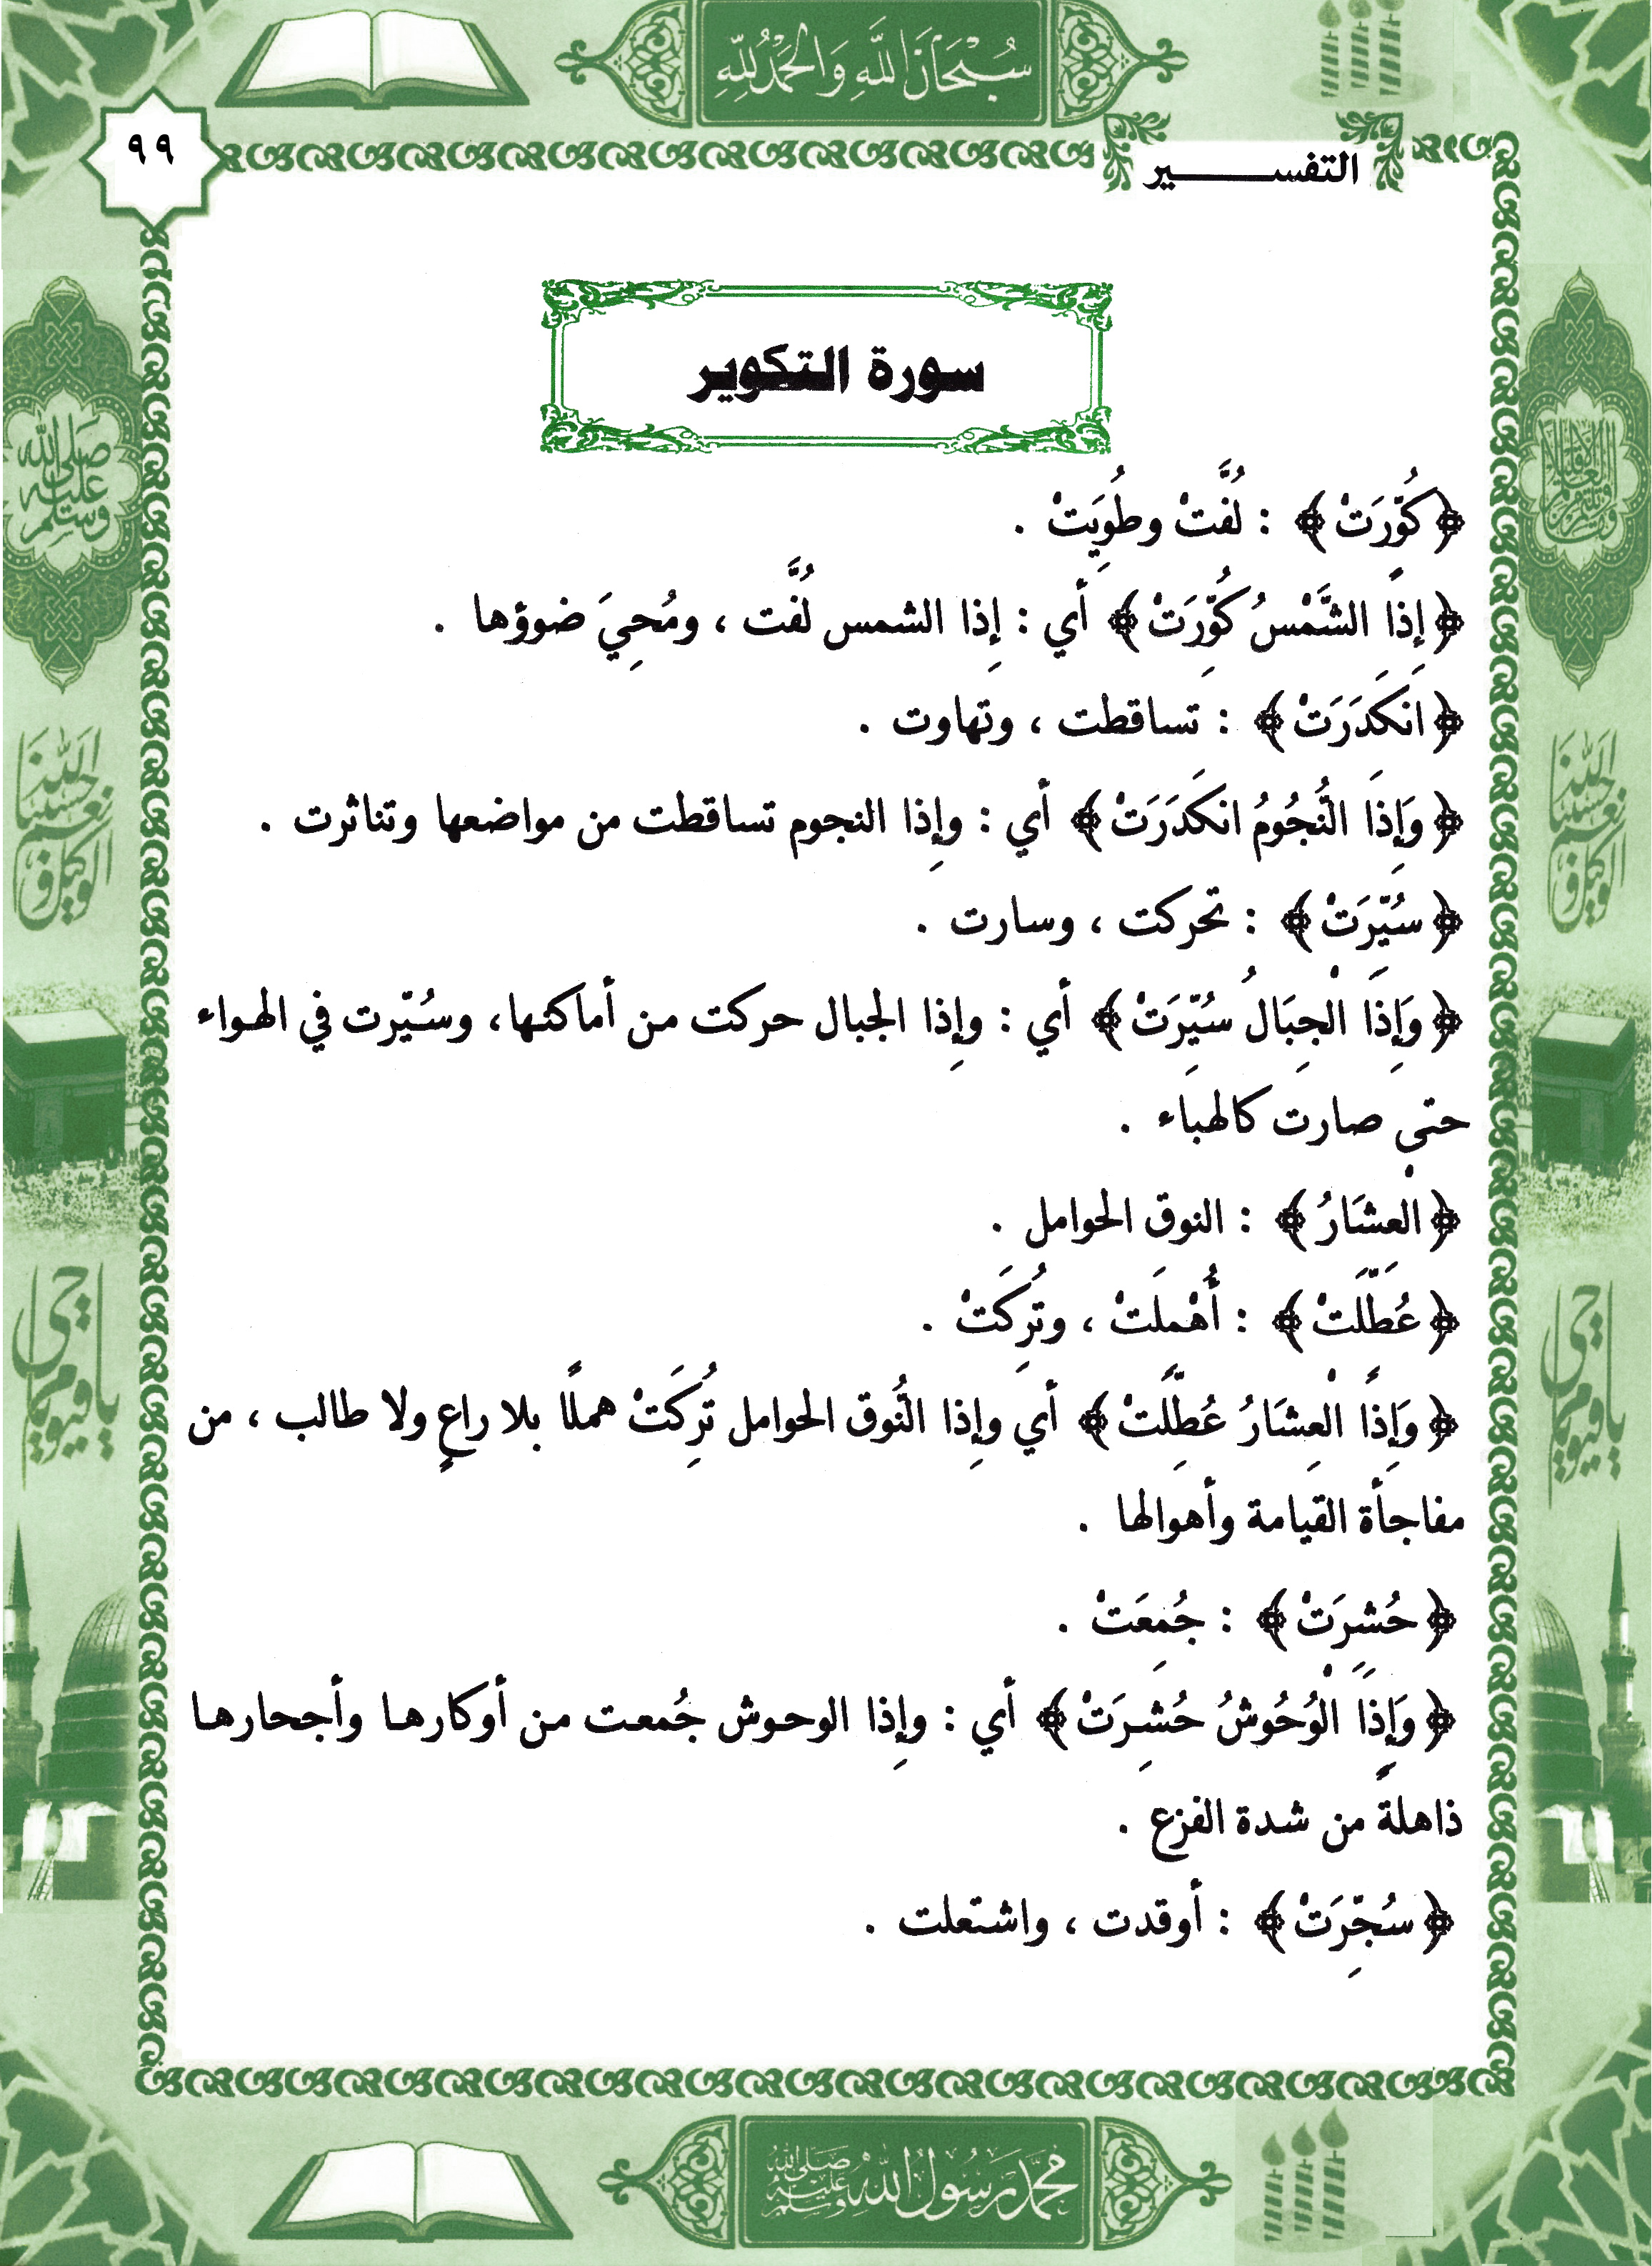 سُبْحَانَ اللَّهِ وَالْحَمْدُ لِلَّهِ
٩٩
التفسير
سورة التكوير
﴿كُوِّرَتْ﴾ : لُفَّتْ وطُوِيَتْ .
﴿إِذَا الشَّمْسُ كُوِّرَتْ﴾ أي : إِذا الشمس لُفَّت ، ومُحِيَ ضوؤها .
﴿انكَدَرَتْ﴾ : تساقطت ، وتهاوت .
﴿وَإِذَا النُّجُومُ انكَدَرَتْ﴾ أي : وإِذا النجوم تساقطت من مواضعها وتناثرت .
﴿سُيِّرَتْ﴾ : تحركت ، وسارت .
﴿وَإِذَا الْجِبَالُ سُيِّرَتْ﴾ أي : وإِذا الجبال حركت من أماكنها، وسُيّرت في الهواء
حتى صارت كالهباء .
﴿الْعِشَارُ﴾ : النوق الحوامل .
﴿عُطِّلَتْ﴾ : أُهْمِلَتْ ، وتُرِكَتْ .
﴿وَإِذَا الْعِشَارُ عُطِّلَتْ﴾ أي وإِذا النُّوق الحوامل تُرِكَتْ هملًا بلا راعٍ ولا طالب ، من
مفاجأة القيامة وأهوالها .
﴿حُشِرَتْ﴾ : جُمِعَتْ .
﴿وَإِذَا الْوُحُوشُ حُشِرَتْ﴾ أي : وإِذا الوحوش جُمعت من أوكارها وأجحارها
ذاهلةً من شدة الفزع .
﴿سُجِّرَتْ﴾ : أوقدت ، واشتعلت .
صلى الله عليه وسلم
حسبنا الله ونعم الوكيل
يا حي يا قيوم
محمد رسول الله صلى الله عليه وسلم